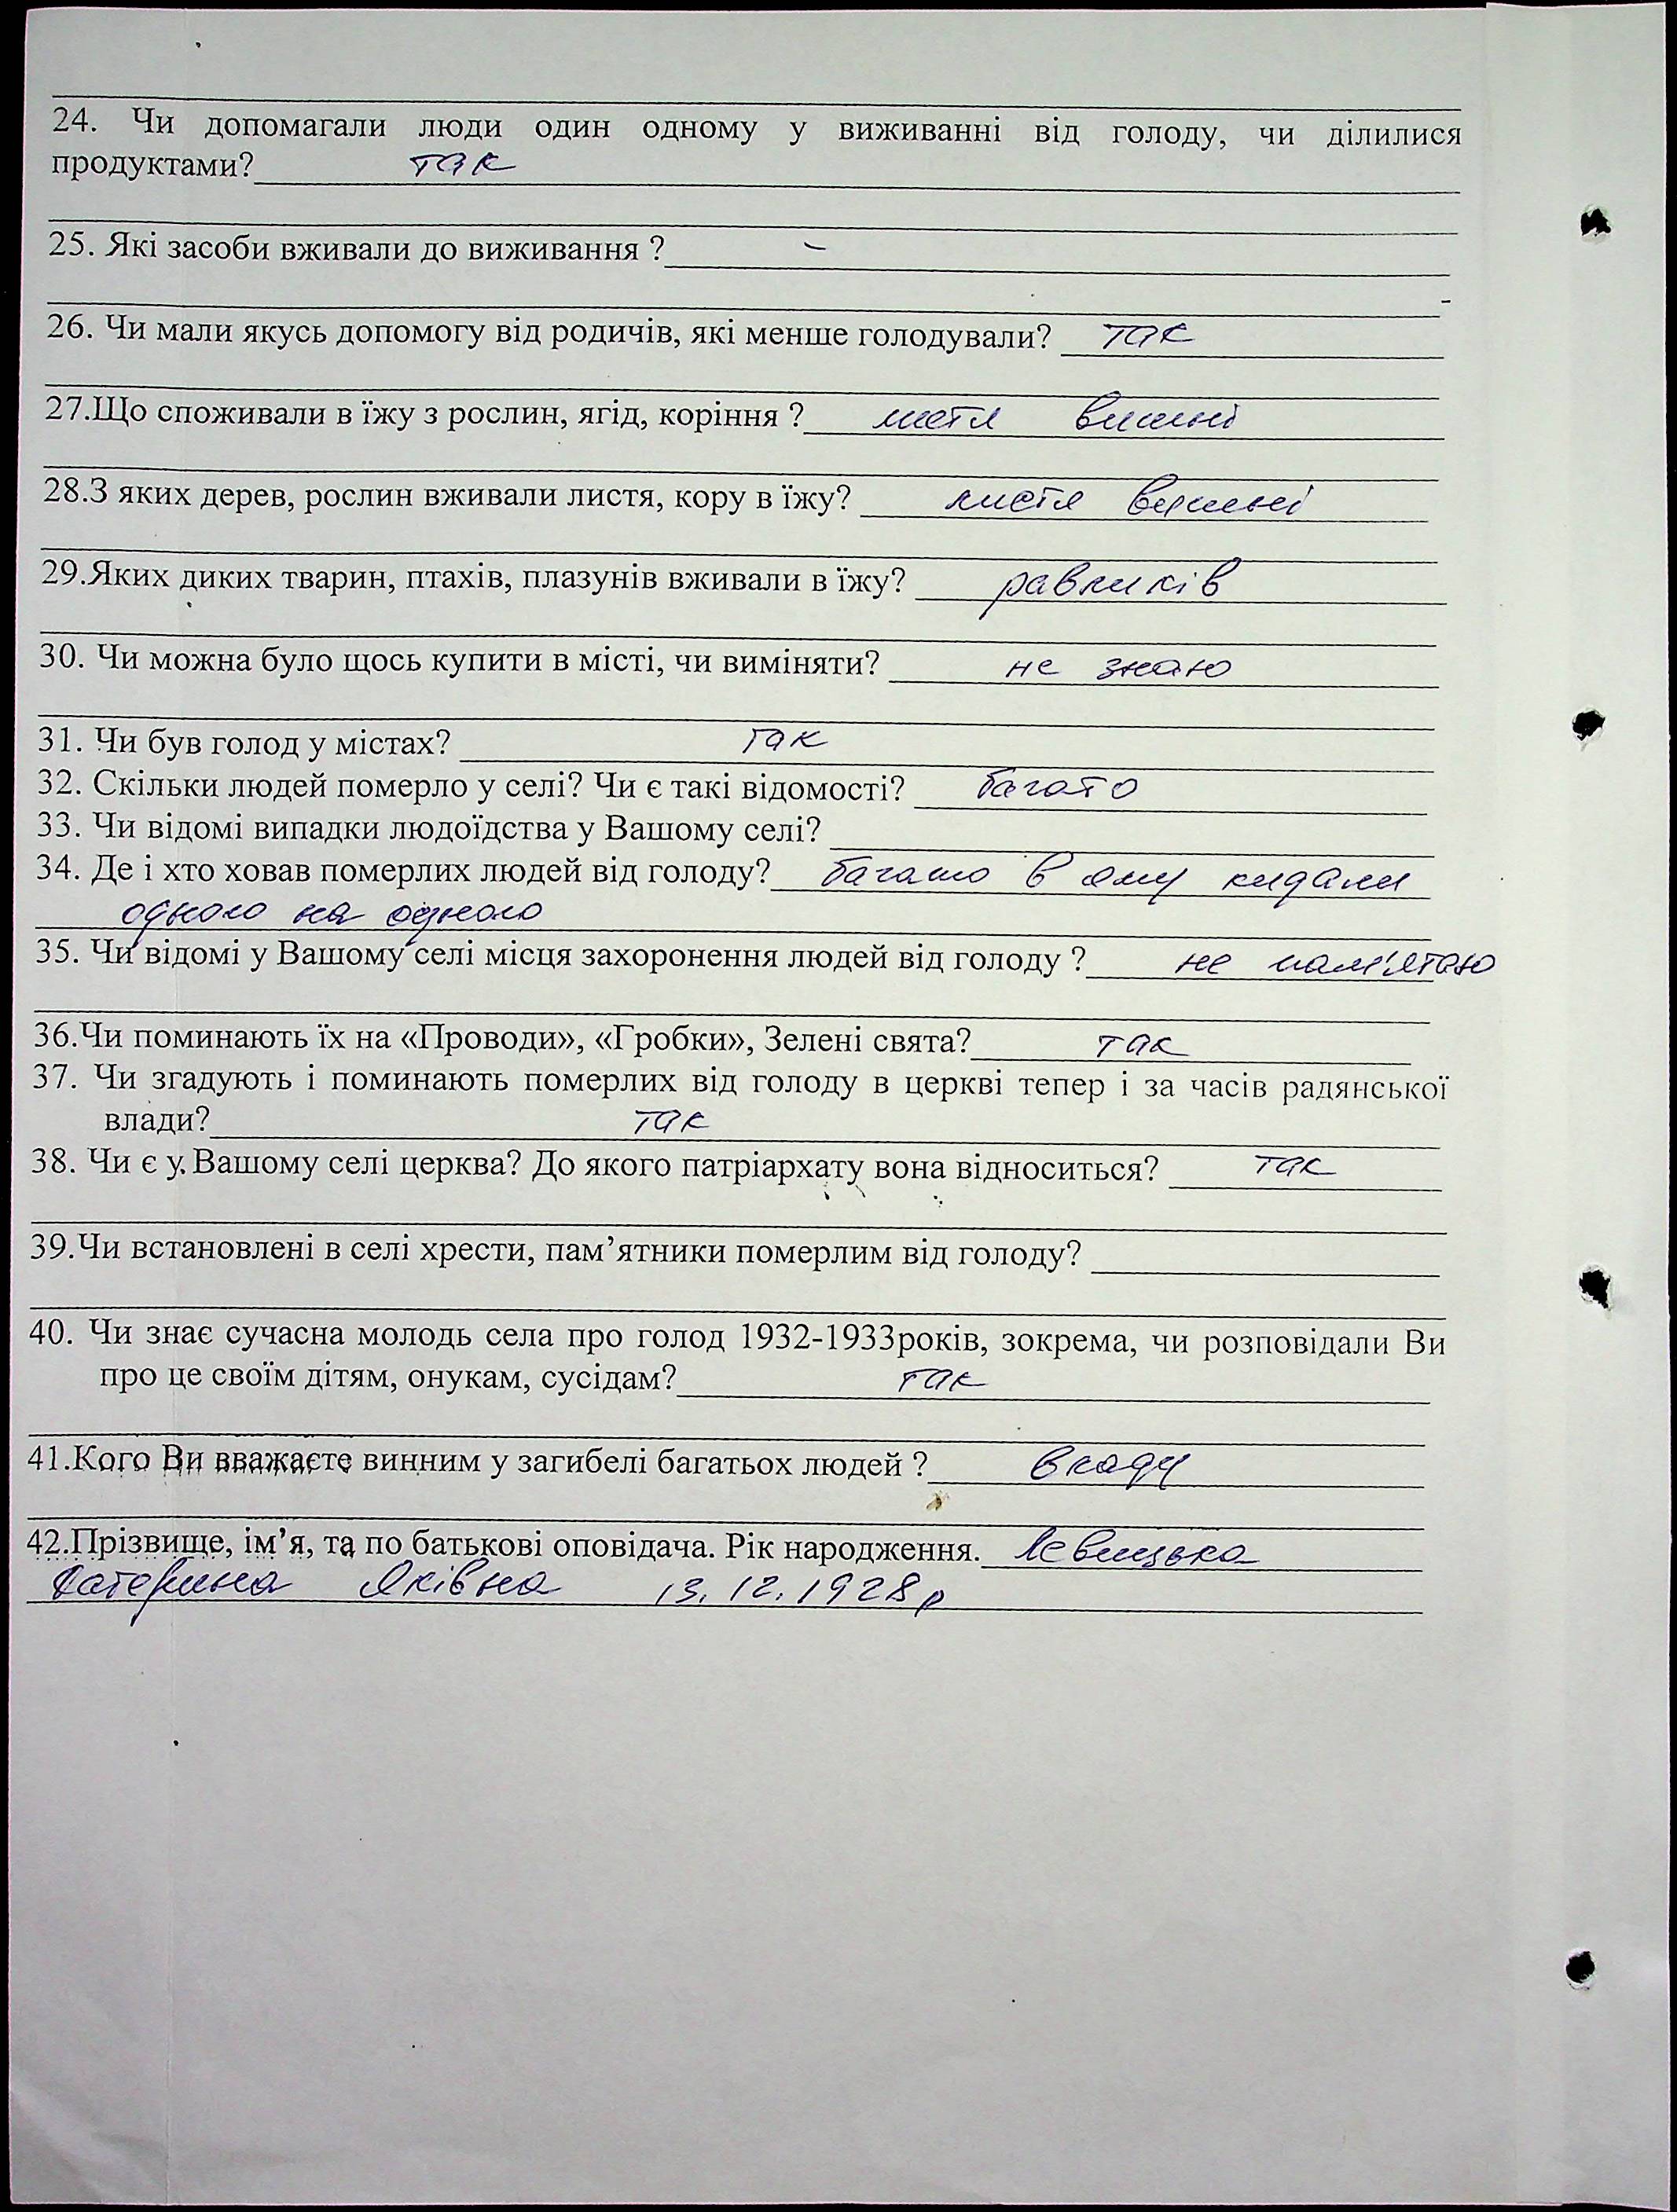 24. Чи допомагали люди один одному у виживанні від голоду, чи ділилися
продуктами? так
25. Які засоби вживали до виживання ? –
26. Чи мали якусь допомогу від родичів, які менше голодували? так
27.Що споживали в їжу з рослин, ягід, коріння ? листя вишні
28.З яких дерев, рослин вживали листя, кору в їжу? листя вишні
29.Яких диких тварин, птахів, плазунів вживали в їжу? равликів
30. Чи можна було щось купити в місті, чи виміняти? не знаю
31. Чи був голод у містах? так
32. Скільки людей померло у селі? Чи є такі відомості? багато
33. Чи відомі випадки людоїдства у Вашому селі?
34. Де і хто ховав померлих людей від голоду? багато в яму кидали
одного на одного
35. Чи відомі у Вашому селі місця захоронення людей від голоду ? не пам'ятаю
36.Чи поминають їх на «Проводи», «Гробки», Зелені свята? так
37. Чи згадують і поминають померлих від голоду в церкві тепер і за часів радянської
влади? так
38. Чи є у Вашому селі церква? До якого патріархату вона відноситься? так
39.Чи встановлені в селі хрести, пам’ятники померлим від голоду?
40. Чи знає сучасна молодь села про голод 1932-1933років, зокрема, чи розповідали Ви
про це своїм дітям, онукам, сусідам? так
41.Кого Ви вважаєте винним у загибелі багатьох людей ? владу
42.Прізвище, ім’я, та по батькові оповідача. Рік народження. Левицька
Катерина Яківна 13.12.1928р